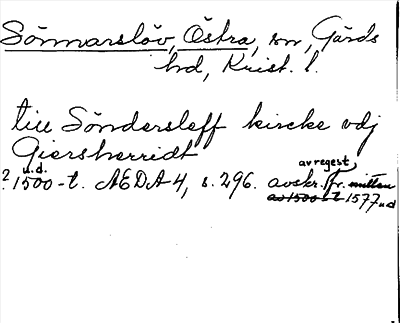 Sönnarslöv, Östra, sn, Gärds
hd, Krist. l.
till Söndersleff kircke vdj
Giersherridt
u.d. av regest
? 1500-t. ÆDA 4, s. 296. avskr. fr. mitten
av 1500-t 1577 u d